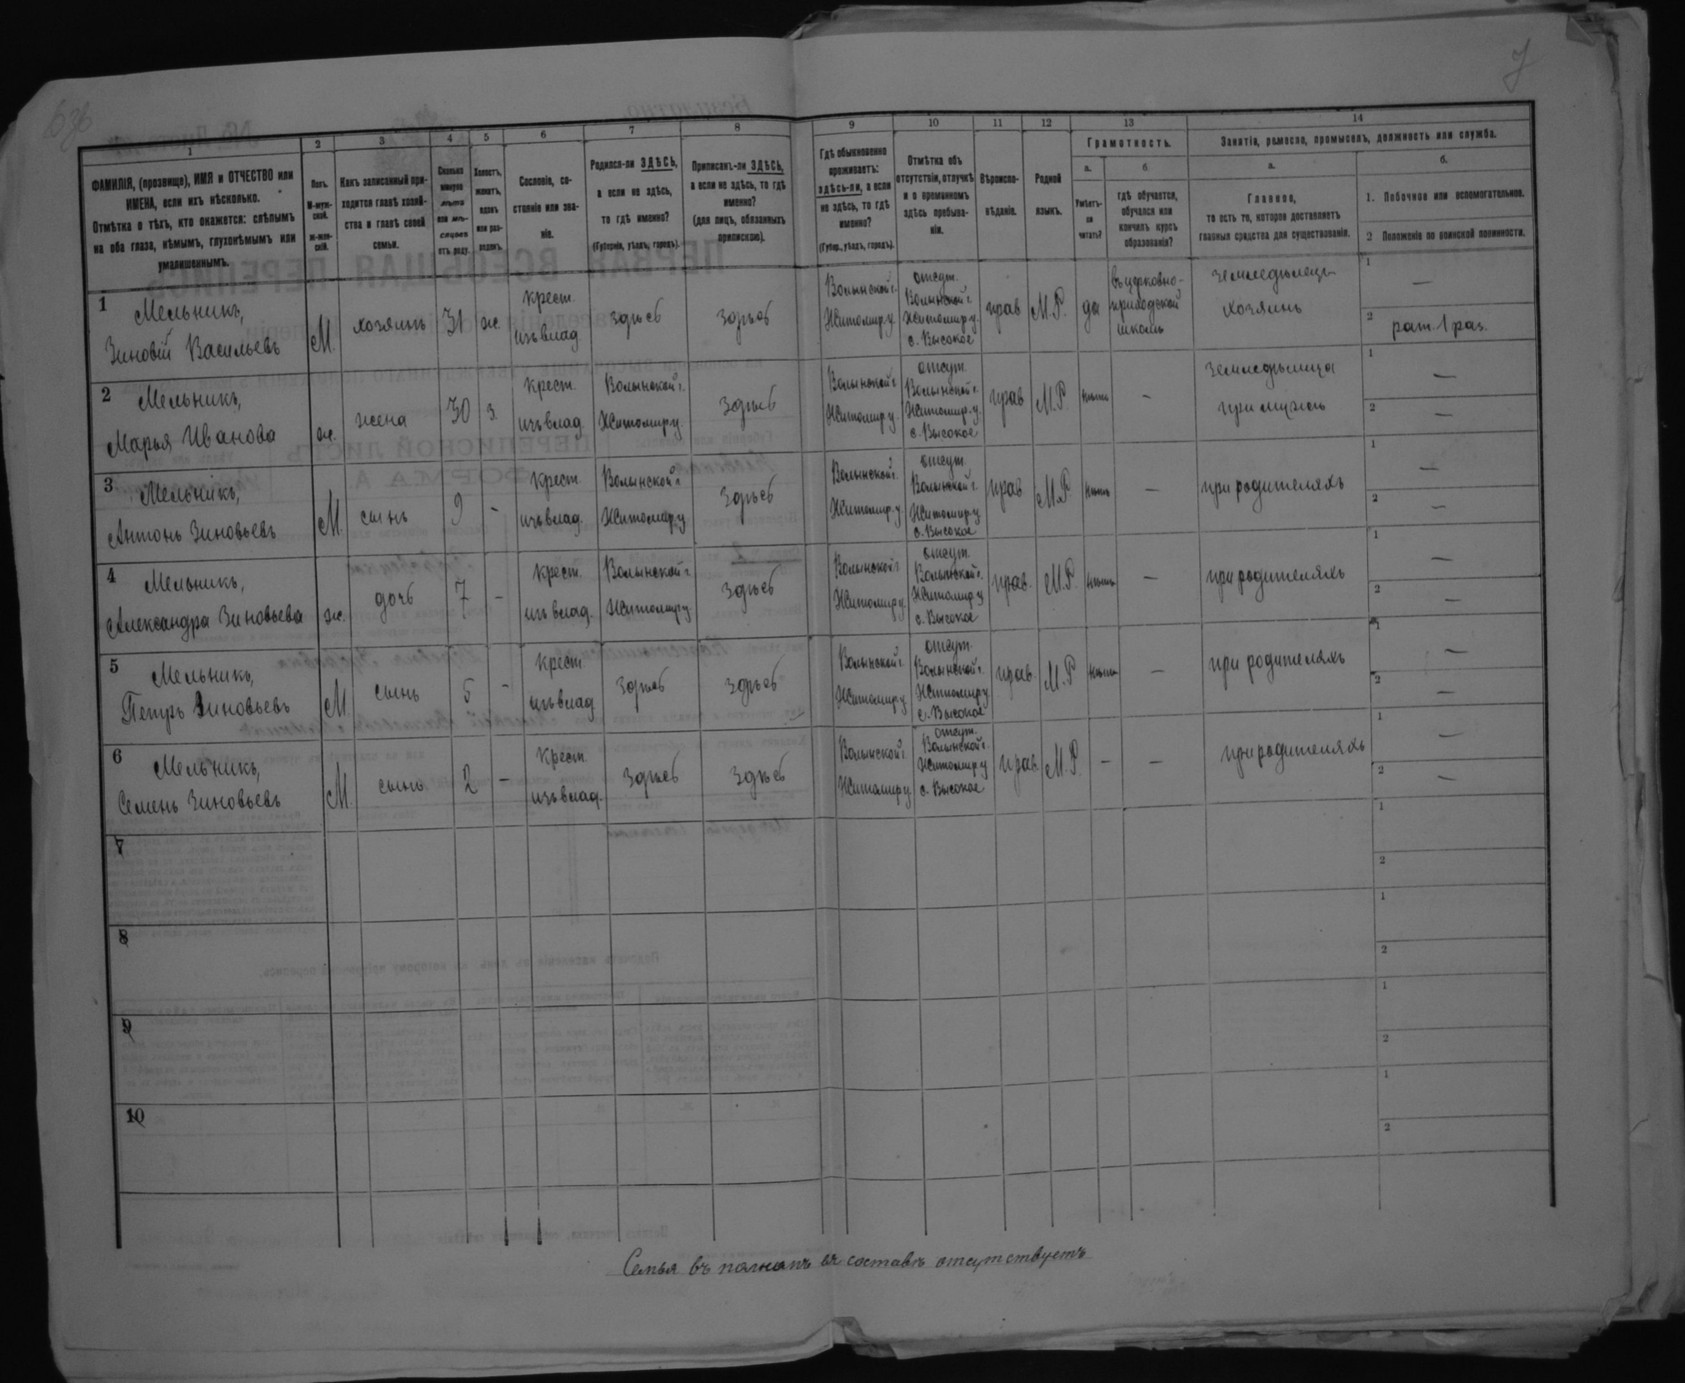 7
1
2
3
4
5
6
7
8
9
10
11
12
13
14
ФАМИЛІЯ, (прозвище), ИМЯ и ОТЧЕСТВО или
ИМЕНА, если ихъ нѣсколько.
Отмѣтка о тѣхъ, кто окажется: слѣпымъ
на оба глаза, нѣмымъ, глухонѣмымъ или
умалишеннымъ.
Полъ.
М-муж-
ской.
ж-жен-
скій.
Какъ записанный при-
ходится главѣ хозяй-
ства и главѣ своей
семьи.
Сколько
минуло
лѣтъ
или мѣ-
сяцевъ
отъ роду.
Холостъ,
женатъ,
вдовъ
или раз-
веденъ.
Сословіе, со-
стояніе или зва-
ніе.
Родился-ли ЗДѢСЬ,
а если не здѣсь,
то гдѣ именно?
(Губернія, уѣздъ, городъ).
Приписанъ-ли ЗДѢСЬ,
а если не здѣсь, то гдѣ
именно?
(для лицъ, обязанныхъ
припискою).
Гдѣ обыкновенно
проживаетъ:
здѣсь-ли, а если
не здѣсь, то гдѣ
именно?
(Губер., уѣздъ, городъ).
Отмѣтка объ
отсутствіи, отлучкѣ
и о временномъ
здѣсь пребыва-
ніи.
Вѣроиспо-
вѣданіе.
Родной
языкъ.
Грамотность.
а.
Умѣетъ-
ли
читать?
б.
гдѣ обучается,
обучался или
кончилъ курсъ
образованія?
Занятія, ремесло, промыселъ, должность или служба.
а.
Главное,
то есть то, которое доставляетъ
главныя средства для существованія.
б.
1. Побочное или вспомогательное.
2 Положеніе по воинской повинности.
1
Мельникъ,
Зиновій Васильевъ
М.
хозяинъ
31
ж.
крест.
изъ влад.
здѣсь
здѣсь
Волынской г.
Житомир. у.
отсут.
Волынской г.
Житомир. у.
с. Высокое
прав.
М.Р.
да
въ церковно-
приходской
школѣ
земледѣлецъ
хозяинъ
1
—
2
рат. 1 раз.
2
Мельникъ,
Марья Иванова
ж.
жена
30
з.
крест.
изъ влад.
Волынской г.
Житомир. у.
здѣсь
Волынской г.
Житомир. у.
отсут.
Волынской г.
Житомир. у.
с. Высокое
прав.
М.Р.
нѣтъ
—
земледѣлица
при мужѣ
1
—
2
—
3
Мельникъ,
Антонъ Зиновьевъ
М.
сынъ
9
-
крест.
изъ влад.
Волынской г.
Житомир. у.
здѣсь
Волынской г.
Житомир. у.
отсут.
Волынской г.
Житомир. у.
с. Высокое
прав.
М.Р.
нѣтъ
—
при родителяхъ
1
—
2
—
4
Мельникъ,
Александра Зиновьева
ж.
дочь
7
-
крест.
изъ влад.
Волынской г.
Житомир. у.
здѣсь
Волынской г.
Житомир. у.
отсут.
Волынской г.
Житомир. у.
с. Высокое
прав.
М.Р.
нѣтъ
—
при родителяхъ
1
—
2
—
5
Мельникъ,
Петръ Зиновьевъ
М.
сынъ
5
-
крест.
изъ влад.
здѣсь
здѣсь
Волынской г.
Житомир. у.
отсут.
Волынской г.
Житомир. у.
с. Высокое
прав.
М.Р.
нѣтъ
—
при родителяхъ
1
—
2
—
6
Мельникъ,
Семенъ Зиновьевъ
М.
сынъ
2
-
Крест.
изъ влад.
здѣсь
здѣсь
Волынской г.
Житомир. у.
отсут.
Волынской г.
Житомир. у.
с. Высокое
прав.
М.Р.
-
-
при родителяхъ
1
—
2
—
7
1
2
8
1
2
9
1
2
10
1
2
Семья въ полномъ ея составѣ отсутствуетъ